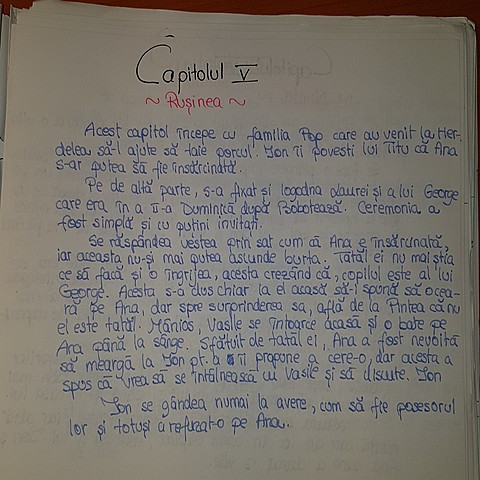 Capitolul V
~ Rușinea ~
Acest capitol începe cu familia Pop care au venit la Her-
delea să-l ajute să taie porcul. Ion îi povesti lui Titu că Ana
s-ar putea să fie însărcinată.
Pe de altă parte, s-a fixat și logodna Laurei și a lui George
care era în a II-a Duminică după Bobotează. Ceremonia a
fost simplă și cu puțini invitați.
Se răspândea vestea prin sat cum că Ana e însărcinată,
iar aceasta nu-și mai putea ascunde burta. Tatăl ei nu mai știa
ce să facă și o îngrijea, acesta crezând că, copilul este al lui
George. Acesta s-a dus chiar la el acasă să-i spună să o cea-
ră pe Ana, dar spre surprinderea sa, află de la Pintea că nu
el este tatăl. Mânios, Vasile se întoarce acasă și o bate pe
Ana până la sânge. Sfătuit de tatăl ei, Ana a fost nevoită
să meargă la Ion pt. a îi propune a cere-o, dar acesta a
spus că vrea să se întâlnească cu Vasile și să discute. Ion
Ion se gândea numai la avere, cum să fie posesorul
lor și totuși a refuzat-o pe Ana.